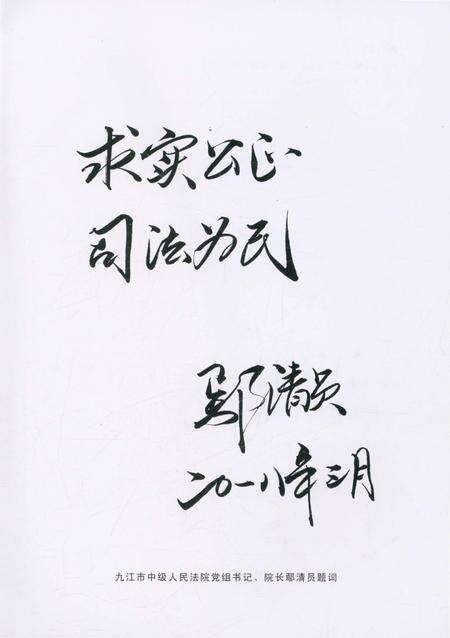 求实公正
司法为民
鄢清员
二〇一八年三月
九江市中级人民法院党组书记、院长鄢清员题词